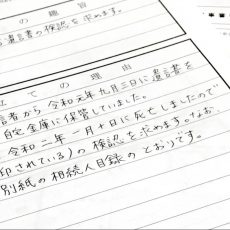 の趣旨
遺言書の検認を求めます。
立ての理由
言者から令和元年九月三日に遺言書を
自宅金庫に保管していました。
令和二年一月十日に死亡しましたので
印されている）の検認を求めます。なお、
別紙の相続人目録のとおりです。